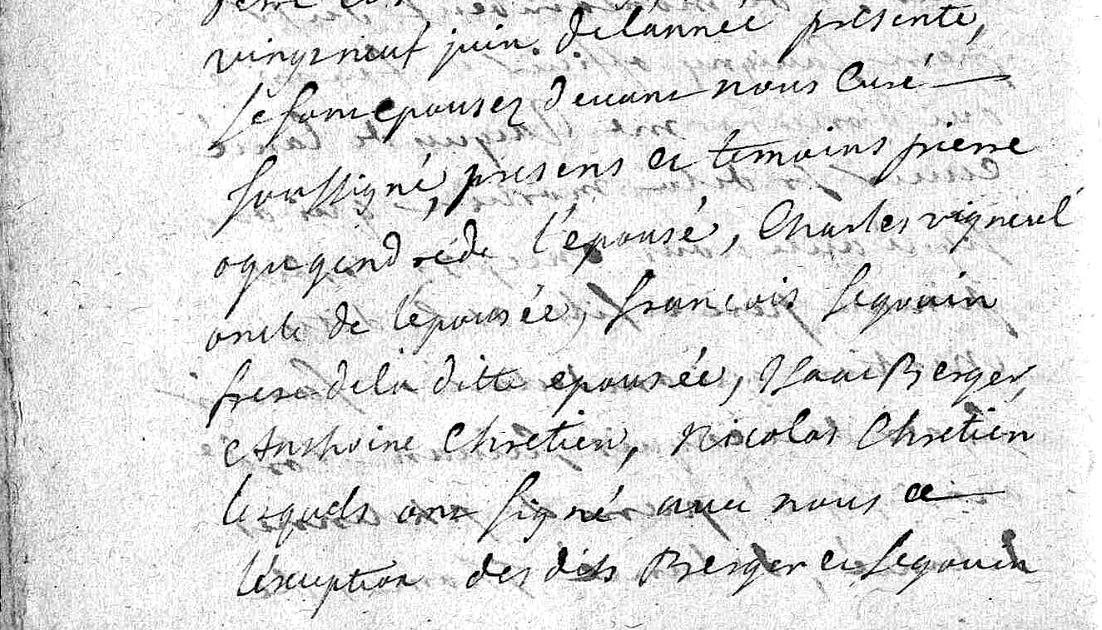 vingt neuf juin de l'année présente,
se sont epousez devant nous Curé
soussigné, presens et temoins pierre
de l'épousé, Charles vignerel
oncle de l'épousée, françois segouin
frere de la ditte epousée, Isaac Berger,
Anthoine Chretien, Nicolas Chretien
lesquels ont signé avec nous a
l'exception des dits Berger et segouin